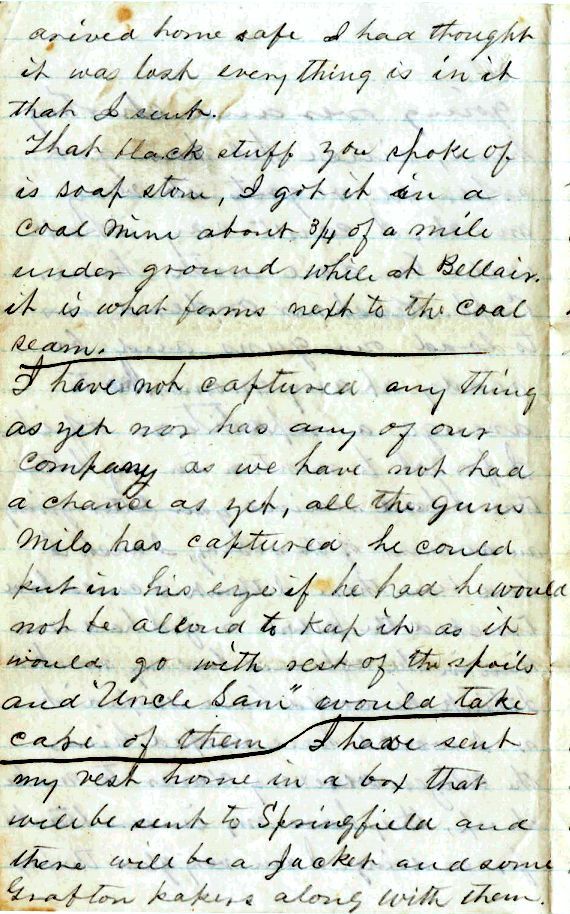 arived home safe I had thought
it was lost every thing is in it
that I sent.
That black stuff you spoke of
is soap stone, I got it in a
coal mine about 3/4 of a mile
under ground while at Bellair.
it is what forms next to the coal
seam.
I have not captured any thing
as yet nor has any of our
company as we have not had
a chance as yet, all the guns
Milo has captured he could
put in his eye if he had he would
not be alloud to kep it as it
would go with rest of the spoils
and "Uncle Sam" would take
care of them I have sent
my vest home in a box that
will be sent to Springfield and
there will be a Jacket and some
Grafton papers along with them.